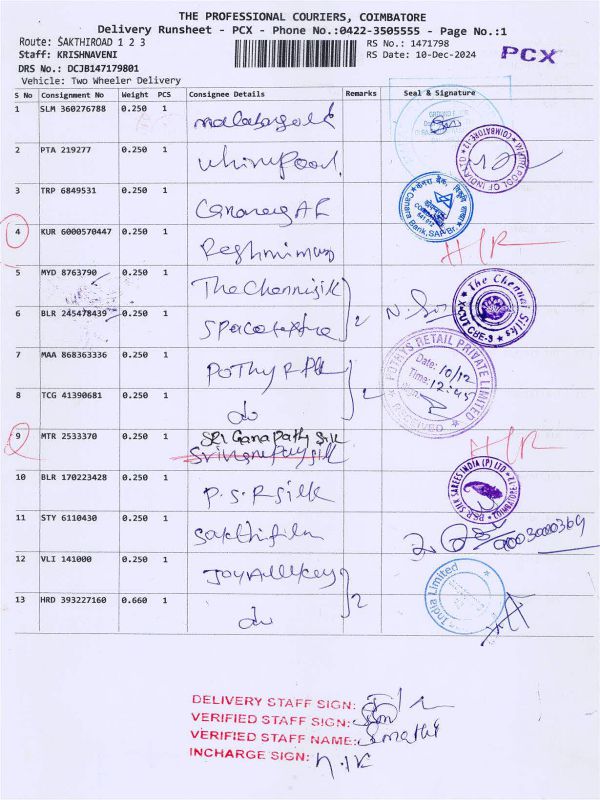 THE PROFESSIONAL COURIERS, COIMBATORE
Delivery Runsheet - PCX - Phone No.:0422-3505555 - Page No.:1
Route: SAKTHIROAD 1 2 3
RS No.: 1471798
Staff: KRISHNAVENI
RS Date: 10-Dec-2024
PCX
DRS No.: DCJB147179801
Vehicle: Two Wheeler Delivery
S No Consignment No Weight PCS Consignee Details Remarks Seal & Signature
1 SLM 360276788 0.250 1
2 PTA 219277 0.250 1 Whirlpool
WHIRLPOOL OF INDIA LTD COIMBATORE-12
3 TRP 6849531 0.250 1
Canara Bank, SAA Br.
4 KUR 6000570447 0.250 1
5 MYD 8763790 0.250 1 The Chennisilk
The Chennai Silks
X-CUT CBE-9
6 BLR 245478439 0.250 1 2
7 MAA 868363336 0.250 1
POTHYS RETAIL PRIVATE LIMITED
Date: 10/12
Time: 12:45
Sign:
RECEIVED
8 TCG 41390681 0.250 1 do 2
9 MTR 2533370 0.250 1 Sri Ganapathy Silk
10 BLR 170223428 0.250 1 P.S.R silk
PSR SILK SAREES INDIA (P) LTD
11 STY 6110430 0.250 1 Sakthifilm
9003000369
12 VLI 141000 0.250 1
India Limited
13 HRD 393227160 0.660 1 do 2
DELIVERY STAFF SIGN:
VERIFIED STAFF SIGN:
VERIFIED STAFF NAME: Sumathi
INCHARGE SIGN: